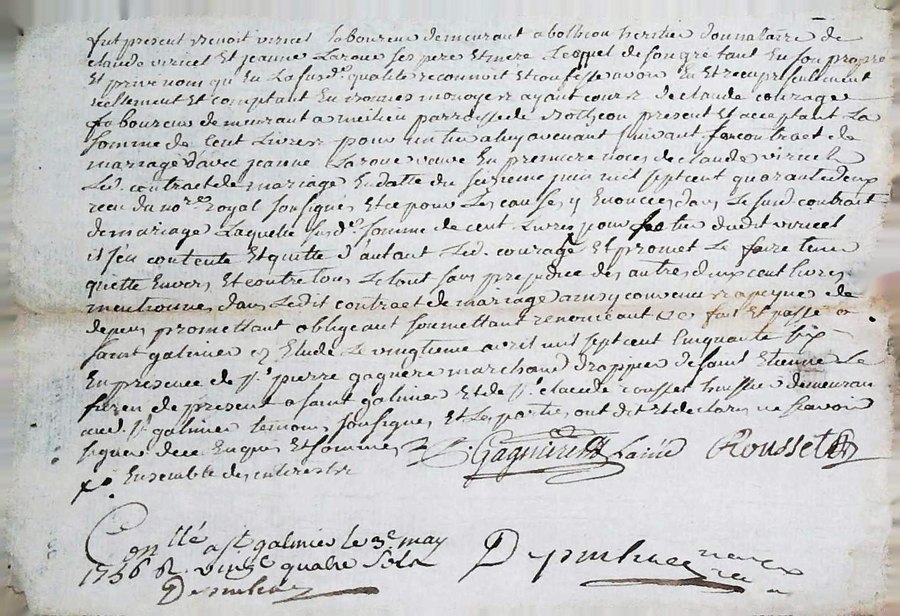 fut present benoit viricel laboureur demeurant a botheon heritier donnataire de
claude viricel et jeanne laroue ses pere et mere lequel de son gré tant en son propre
et privé nom qu'en la susd. qualité reconnoit et confesse avoir eu et receu presentement
reellement et comptant en bonnes monoyes ayant cours de claude courage
laboureur demeurant a meilieu parroisse de botheon present et acceptant la
somme de cent livres pour un tier a luy avenant suivant son contract de
mariage d'avec jeanne laroue veuve en premiere noces de claude viricel
led. contract de mariage en datte du seizieme juin mil sept cent quarante deux
receu du no.re royal soussigné et ce pour les causes y enoncées dans le susd contract
de mariage laquelle susd. somme de cent livres pour tier dudit viricel
il s'en contente et quitte d'autant led. courage et promet le faire tenir
quitte envers et contre tous le tout sans prejudice des autres deux cent livres
mentionnés dans ledit contract de mariage ainsy convenu a peyne de
depens promettant obligeant soumettant renonceant &c fait et passé a
saint galmier etude le vingtieme avril mil sept cent cinquante six
en presence de s. pierre gagnere marchand drappier de saint etienne la
furen de present a saint galmier et de s. claude rousset huissier demeurant
aud. s. galmier temoins soussignés et les parties ont dit et declarés ne scavoir
signer de ce enquis et sommés
Gagniere Lainé Rousset
ensemble des interests
Con.llé a st galmier le 3e may
1756 R. vingt quatre sols